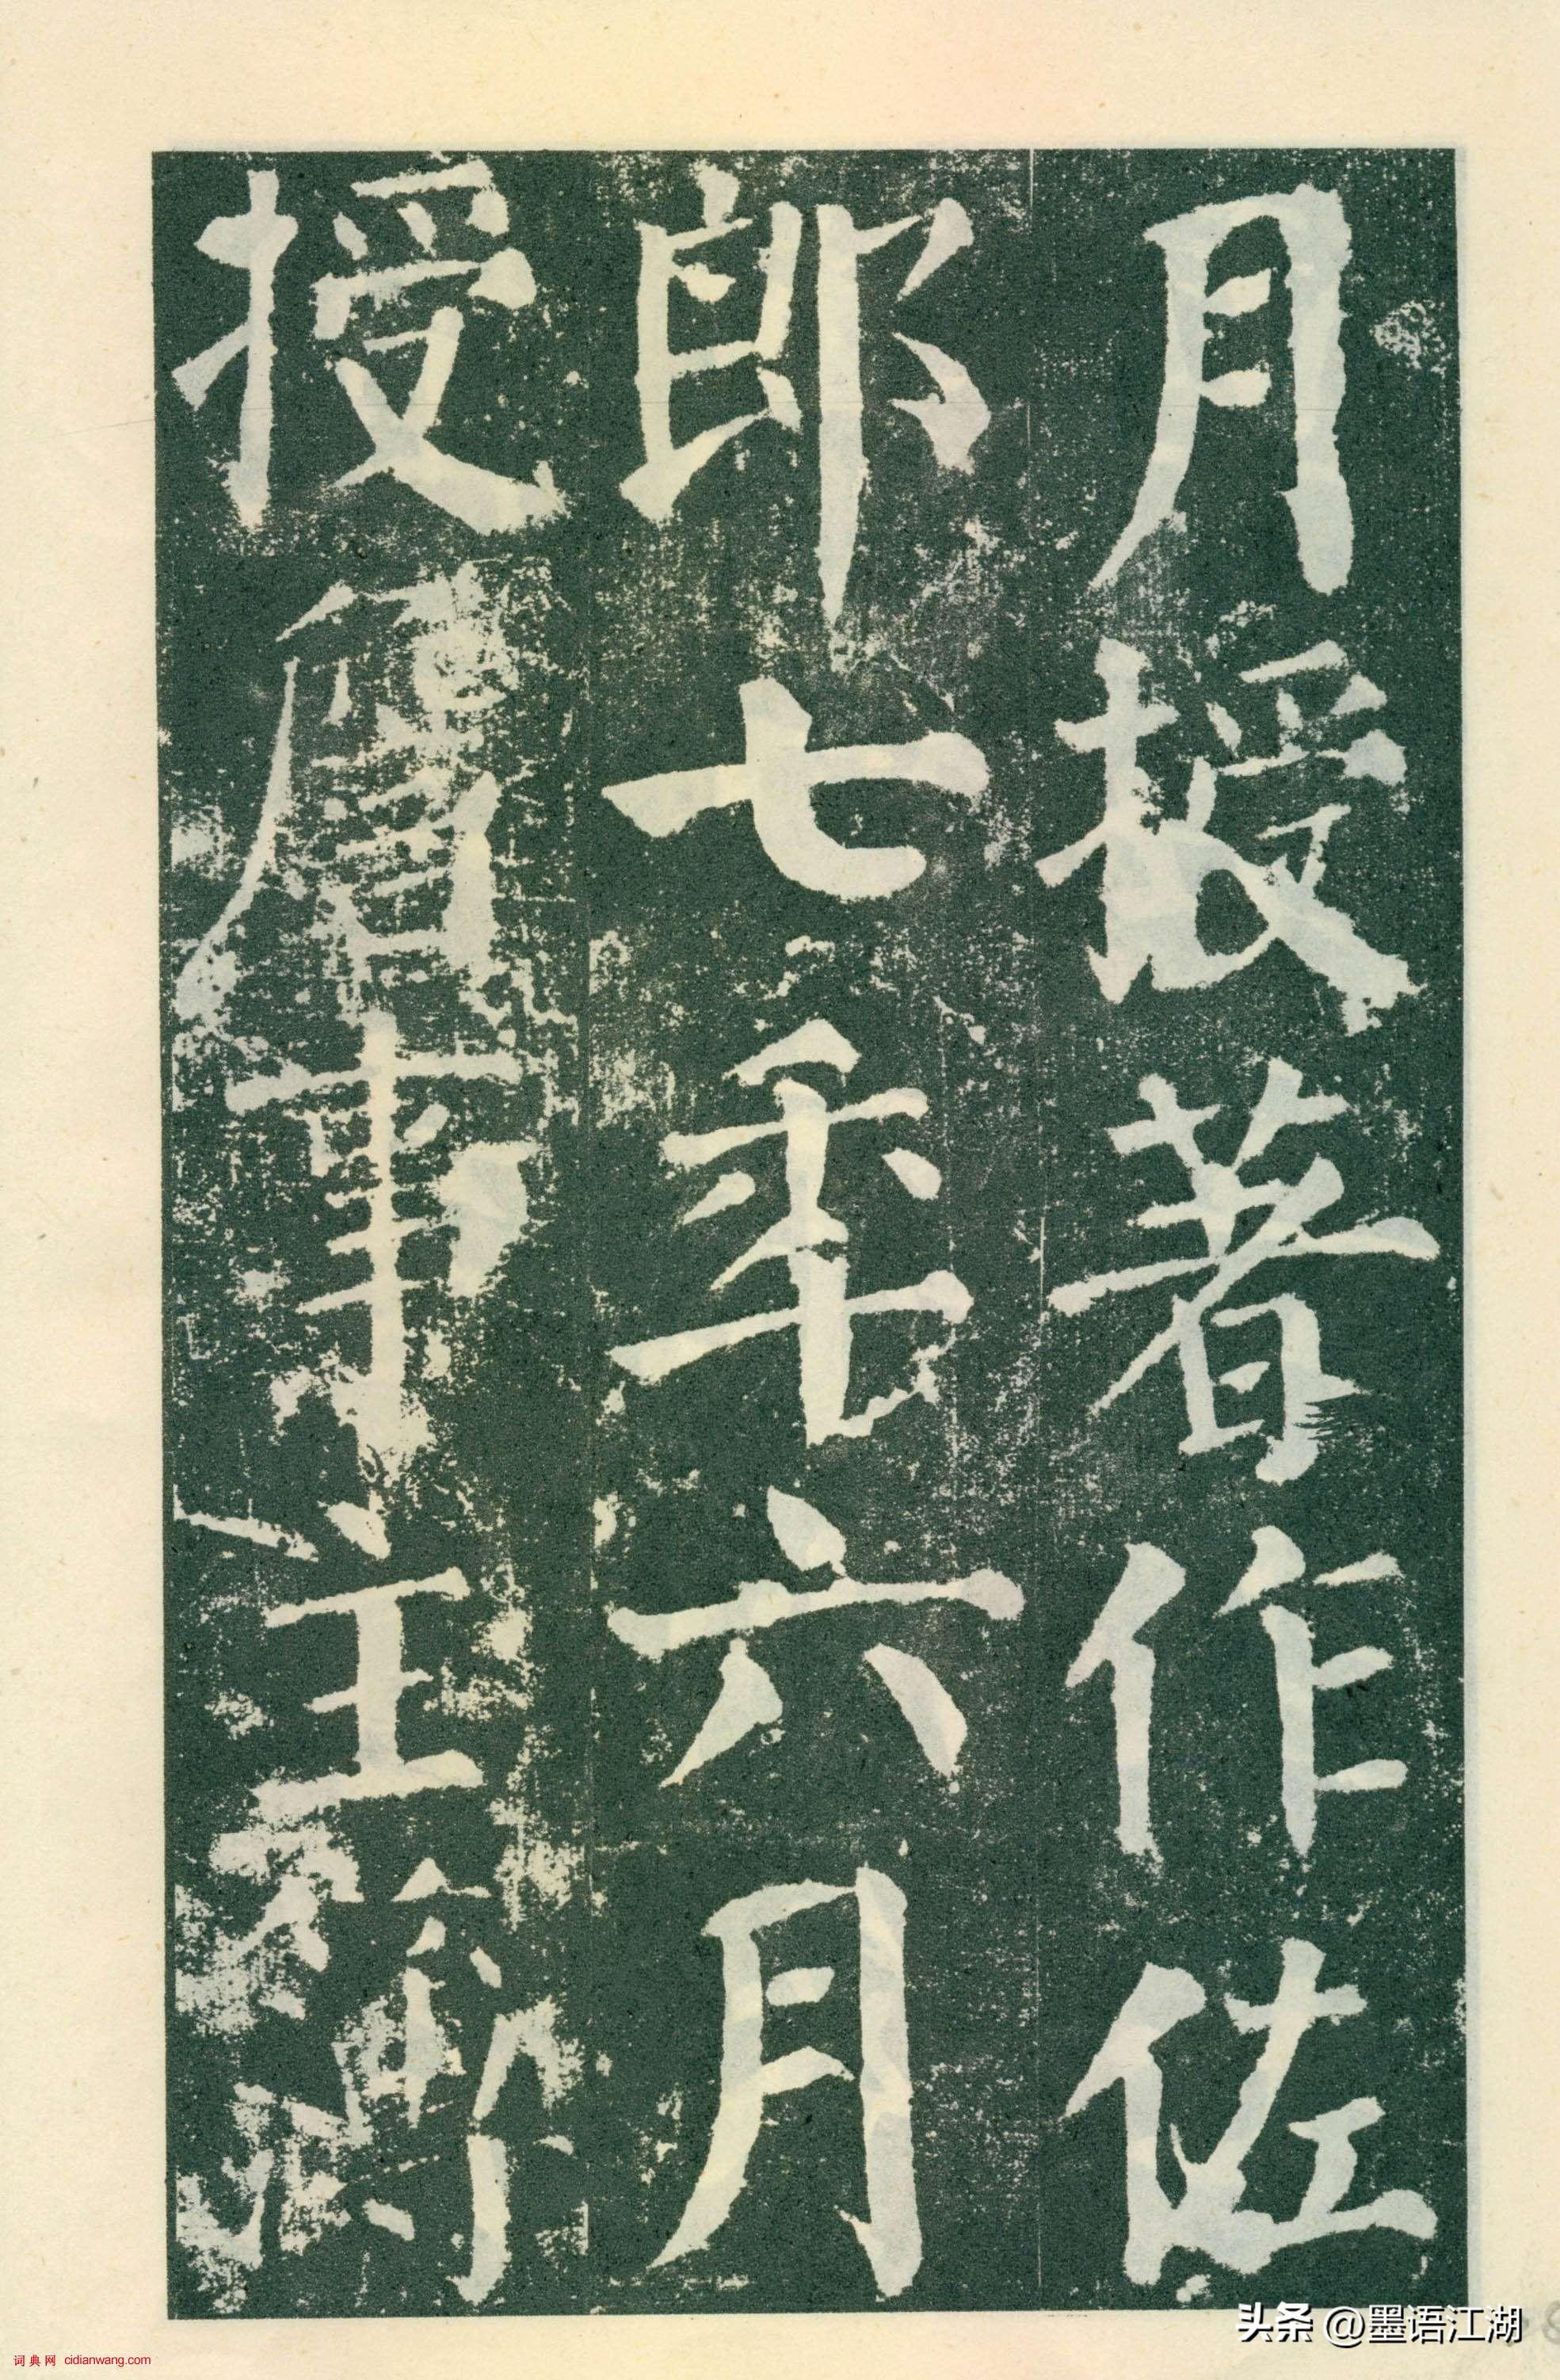 月授著作佐
郎七年六月
授詹事主簿
头条 @墨语江湖
词典网 cidianwang.com